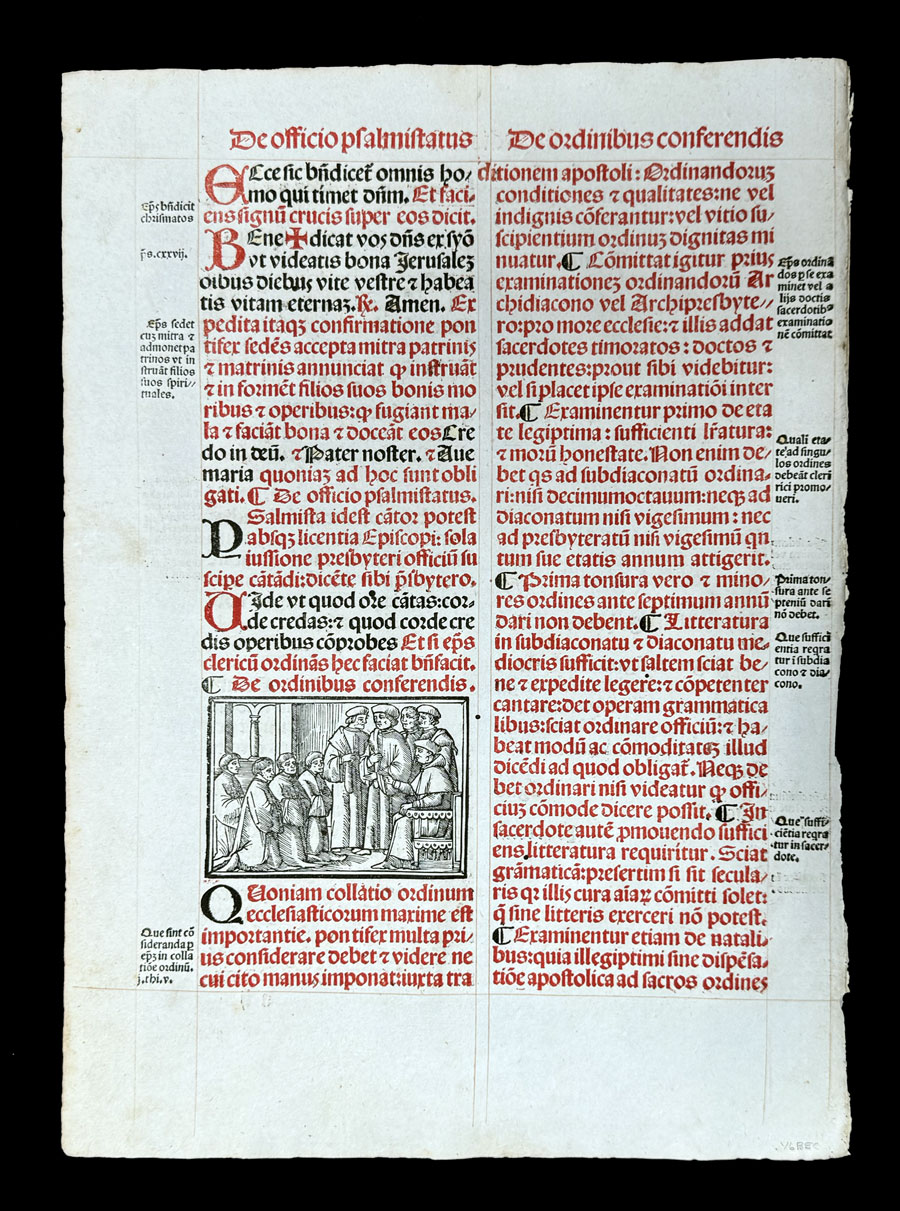 De officio psalmistatus
De ordinibus conferendis
Ep̄s bn̄dicit
chrismatos
p̄s.cxxvij.
Ep̄s sedet
cuȝ mitra ⁊
admonet pa
trinos vt in
struāt filios
suos spiri⸗
tuales.
Que sint cō
sideranda ꝑ
ep̄ȝ in colla
tiōe ordinū.
j.thi.v.
ECce sic bn̄dicet̄ omnis ho⸗
mo qui timet dn̄m. Et faci⸗
ens signū crucis super eos dicit.
BEne✠dicat vos dn̄s ex syō
vt videatis bona Jerusaleȝ
oibus diebus vite vestre ⁊ habea
tis vitam eternaȝ.℞. Amen. Ex
pedita itaqȝ confirmatione pon
tifex sedēs accepta mitra patrinis
⁊ matrinis annunciat ꝙ instruāt
⁊ in formēt filios suos bonis mo
ribus ⁊ operibus:ꝙ fugiant ma⸗
la ⁊ faciāt bona ⁊ doceāt eos Cre
do in deū. ⁊ Pater noster. ⁊ Aue
maria quoniaȝ ad hoc sunt obli
gati. ¶ De officio psalmistatus.
PSalmista idest cātor potest
absqȝ licentia Episcopi: sola
iussione presbyteri officiū su
scipe cātādi:dicēte sibi p̄sbytero.
UIde vt quod ore cātas:cor⸗
de credas:⁊ quod corde cre
dis operibus cōprobes Et si ep̄s
clericū ordināns hec faciat bn̄facit.
¶ De ordinibus conferendis.
QUoniam collatio ordinum
ecclesiasticorum maxime est
importantie. pontifex multa pri⸗
us considerare debet ⁊ videre ne
cui cito manus imponat:iuxta tra
ditionem apostoli: Ordinandoruȝ
conditiones ⁊ qualitates:ne vel
indignis cōferantur:vel vitio su⸗
scipientium ordinuȝ dignitas mi
nuatur. ¶ Cōmittat igitur prius
examinationeȝ ordinandorū Ar
chidiacono vel Archipresbyte⸗
ro:pro more ecclesie:⁊ illis addat
sacerdotes timoratos: doctos ⁊
prudentes:prout sibi videbitur:
vel si placet ipse examinatiōi inter
sit. ¶ Examinentur primo de eta
te legiptima: sufficienti lr̄atura:
⁊ morū honestate. Non enim de⸗
bet qs ad subdiaconatū ordina⸗
ri:nisi decimumoctauum:neqȝ ad
diaconatum nisi vigesimum: nec
ad presbyteratū nisi vigesimū qn
tum sue etatis annum attigerit.
¶ Prima tonsura vero ⁊ mino⸗
res ordines ante septimum annū
dari non debent. ¶ Litteratura
in subdiaconatu ⁊ diaconatu me⸗
diocris sufficit:vt saltem sciat be⸗
ne ⁊ expedite legere:⁊ cōpetenter
cantare:det operam grammatica
libus:sciat ordinare officiū:⁊ ha⸗
beat modū ac cōmoditatēȝ illud
dicēdi ad quod obligat̄. Neqȝ de
bet ordinari nisi videatur ꝙ offi⸗
ciuȝ cōmode dicere possit. ¶ In
sacerdote autē ꝓmouendo suffici
ens litteratura requiritur. Sciat
grāmaticā:presertim si sit secula⸗
ris qr illis cura aīaꝝ cōmitti solet:
q̄ sine litteris exerceri nō potest.
¶ Examinentur etiam de natali⸗
bus:quia illegiptimi sine dispēsa⸗
tiōe apostolica ad sacros ordines
Ep̄s ordinā
dos ꝑ se exa
minet vel a
lijs doctis
sacerdotibꝰ
examinatio
nē cōmittat
Quali eta⸗
te ad singu⸗
los ordines
debeāt cleri
rici promo⸗
ueri.
Prima ton⸗
sura ante se
pteniū dari
nō debet.
Que suffici
entia reqra
tur ī subdia
cono ⁊ dia⸗
cono.
Que suffi⸗
ciētia reqra
tur in sacer⸗
dote.